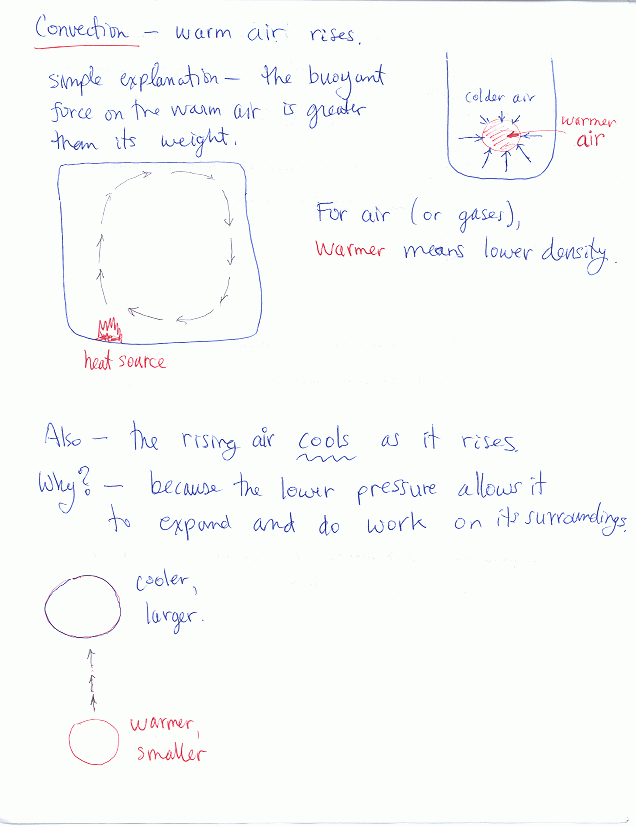 Convection – warm air rises.
simple explanation – the buoyant
force on the warm air is greater
than its weight.
colder air
warmer
air
For air (or gases),
warmer means lower density.
heat source
Also – the rising air cools as it rises.
Why? – because the lower pressure allows it
to expand and do work on its surroundings.
cooler,
larger.
warmer,
smaller